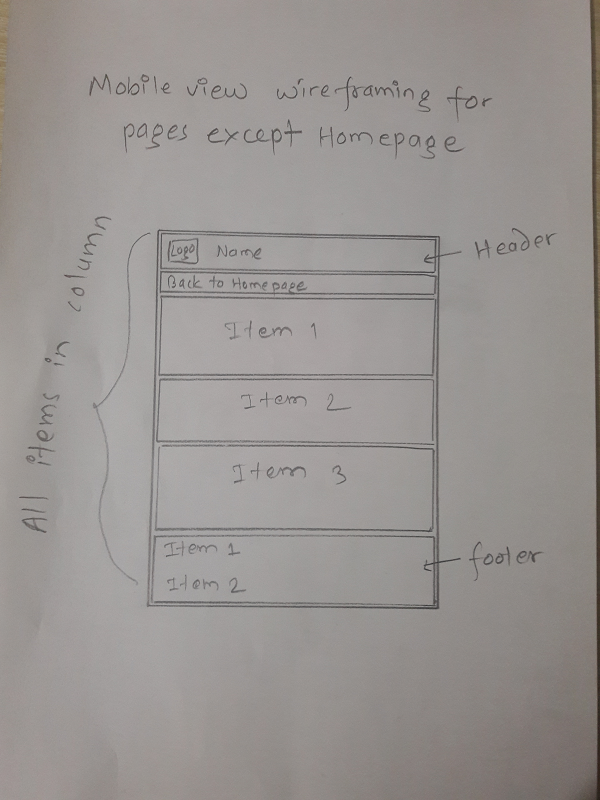 Mobile view wireframing for
pages except Homepage
All items in column
Logo Name
Header
Back to Homepage
Item 1
Item 2
Item 3
Item 1
Item 2
footer